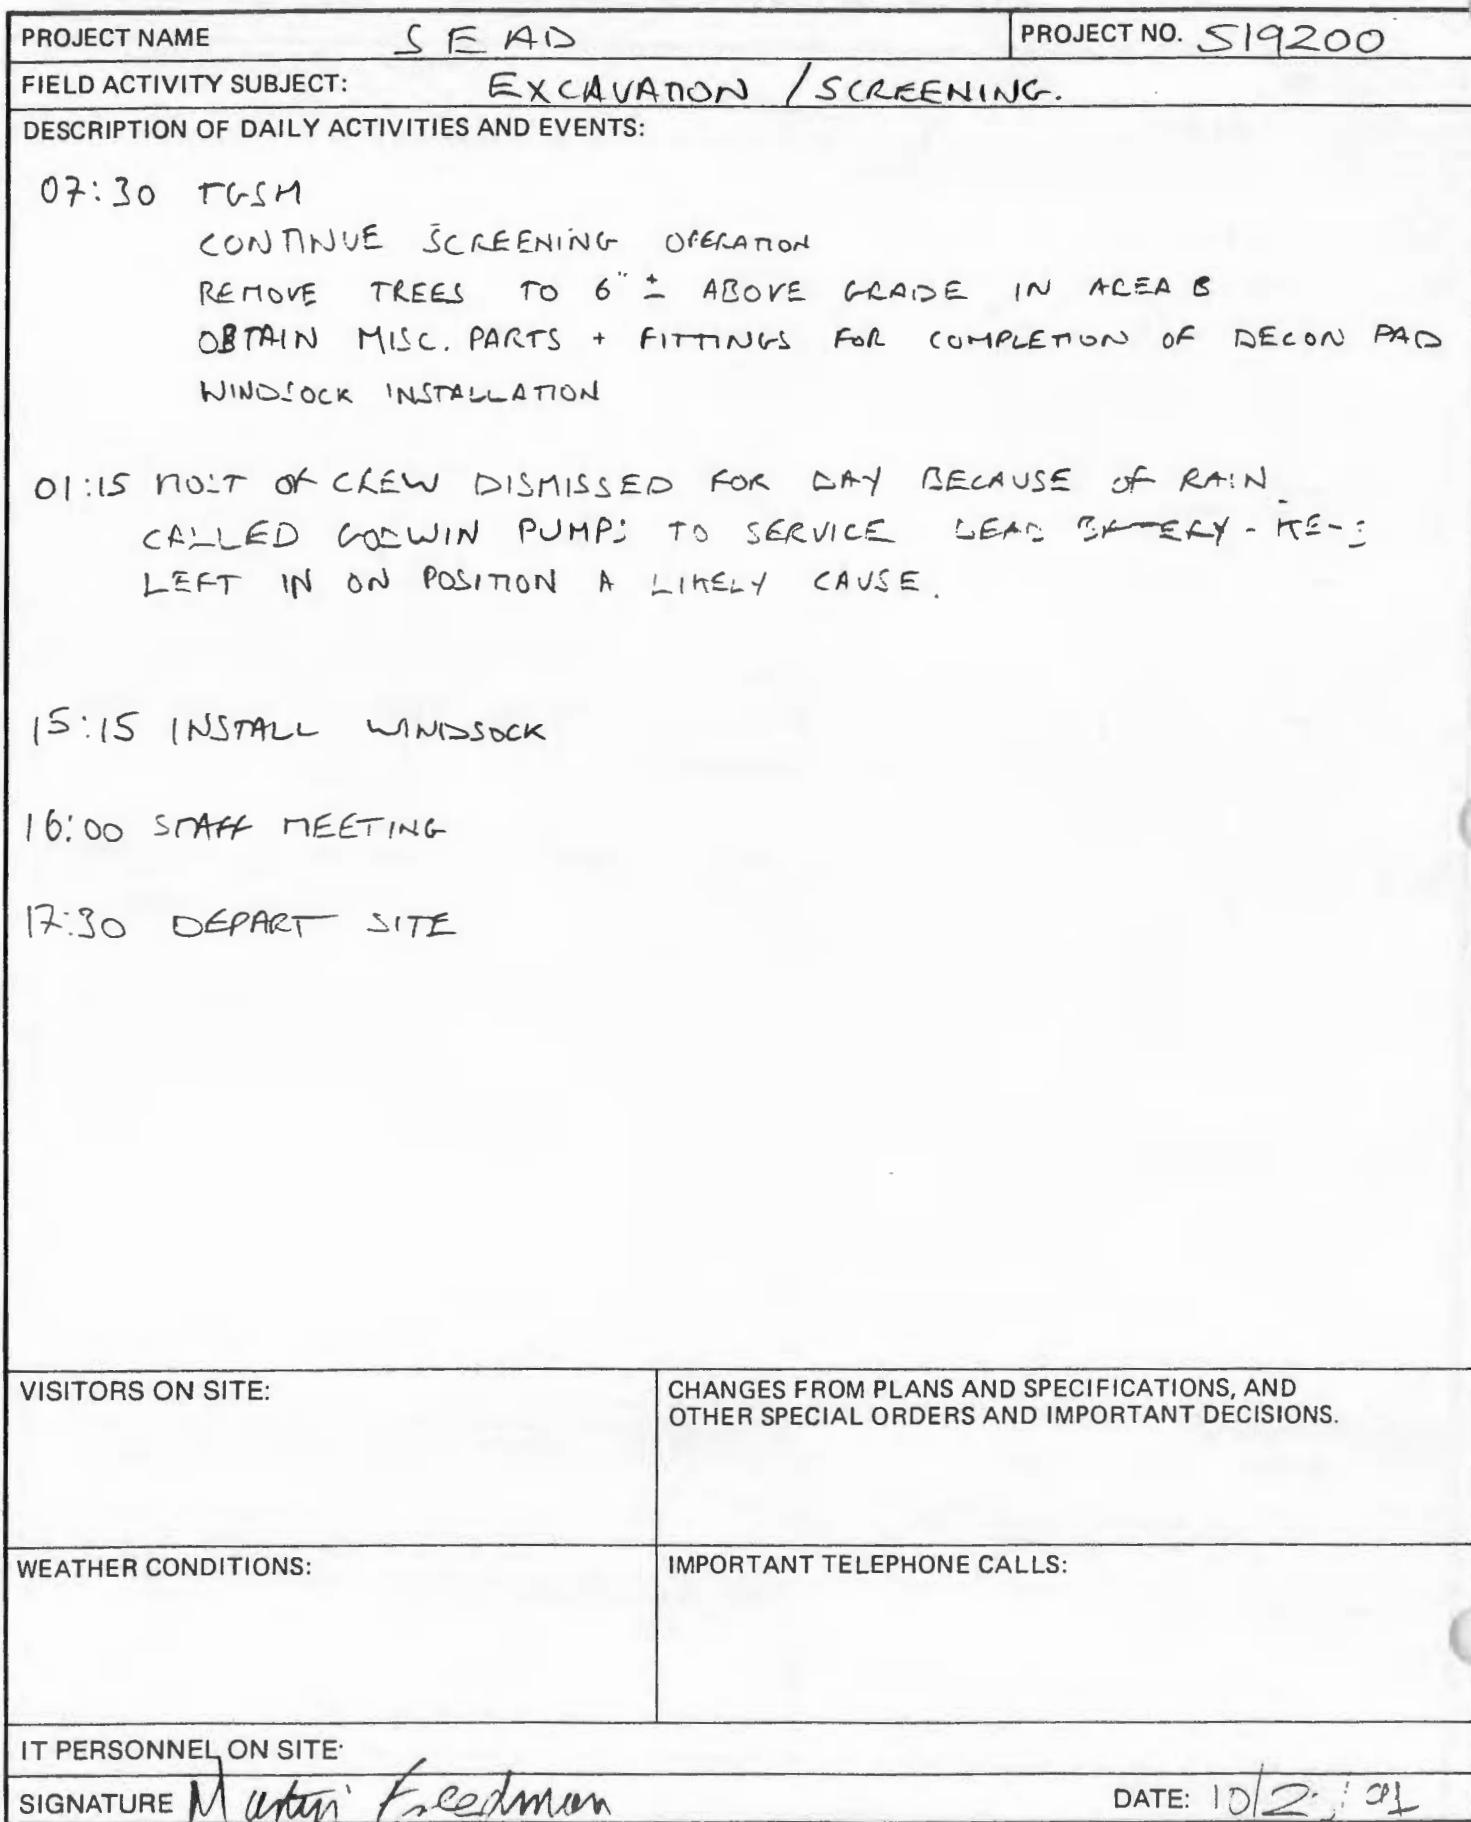 PROJECT NAME SEAD PROJECT NO. 519200
FIELD ACTIVITY SUBJECT: EXCAVATION / SCREENING.
DESCRIPTION OF DAILY ACTIVITIES AND EVENTS:
07:30 TGSM
CONTINUE SCREENING OPERATION
REMOVE TREES TO 6" ± ABOVE GRADE IN AREA B
OBTAIN MISC. PARTS + FITTINGS FOR COMPLETION OF DECON PAD
WINDSOCK INSTALLATION
01:15 MOST OF CREW DISMISSED FOR DAY BECAUSE OF RAIN.
CALLED GODWIN PUMPS TO SERVICE BATTERY -
LEFT IN ON POSITION A LIKELY CAUSE.
15:15 INSTALL WINDSOCK
16:00 STAFF MEETING
17:30 DEPART SITE
VISITORS ON SITE:
CHANGES FROM PLANS AND SPECIFICATIONS, AND
OTHER SPECIAL ORDERS AND IMPORTANT DECISIONS.
WEATHER CONDITIONS:
IMPORTANT TELEPHONE CALLS:
IT PERSONNEL ON SITE:
SIGNATURE Martin Freedman DATE: